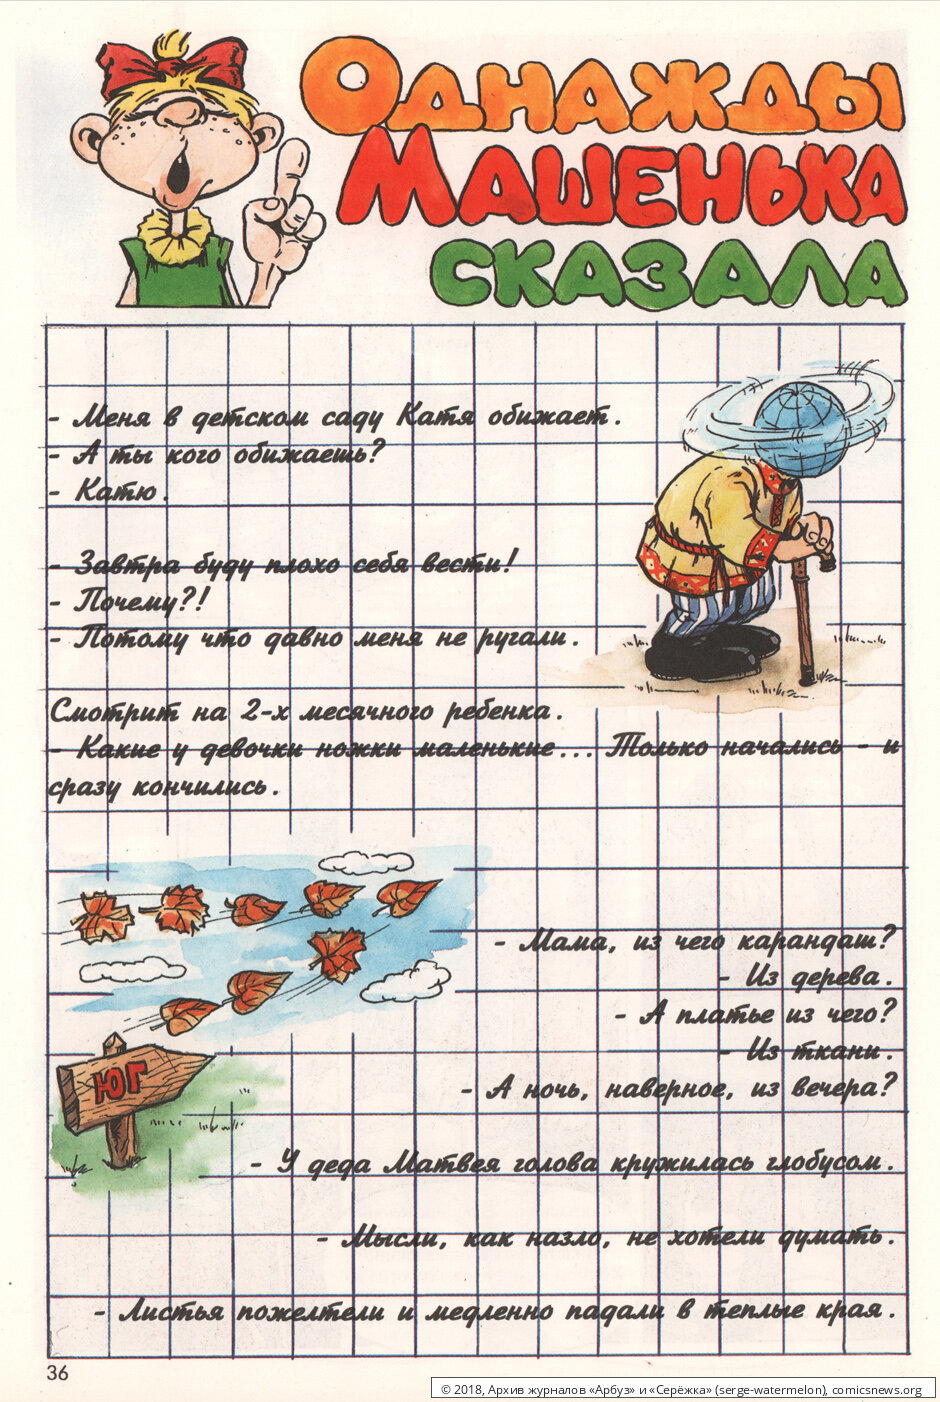 Однажды
Машенька
сказала
- Меня в детском саду Катя обижает.
- А ты кого обижаешь?
- Катю.
- Завтра буду плохо себя вести!
- Почему?!
- Потому что давно меня не ругали.
Смотрит на 2-х месячного ребенка.
- Какие у девочки ножки маленькие... Только начались - и
сразу кончились.
- Мама, из чего карандаш?
- Из дерева.
- А платье из чего?
- Из ткани.
- А ночь, наверное, из вечера?
ЮГ
- У деда Матвея голова кружилась глобусом.
- Мысли, как назло, не хотели думать.
- Листья пожелтели и медленно падали в теплые края.
36
© 2018, Архив журналов «Арбуз» и «Серёжка» (serge-watermelon), comicsnews.org